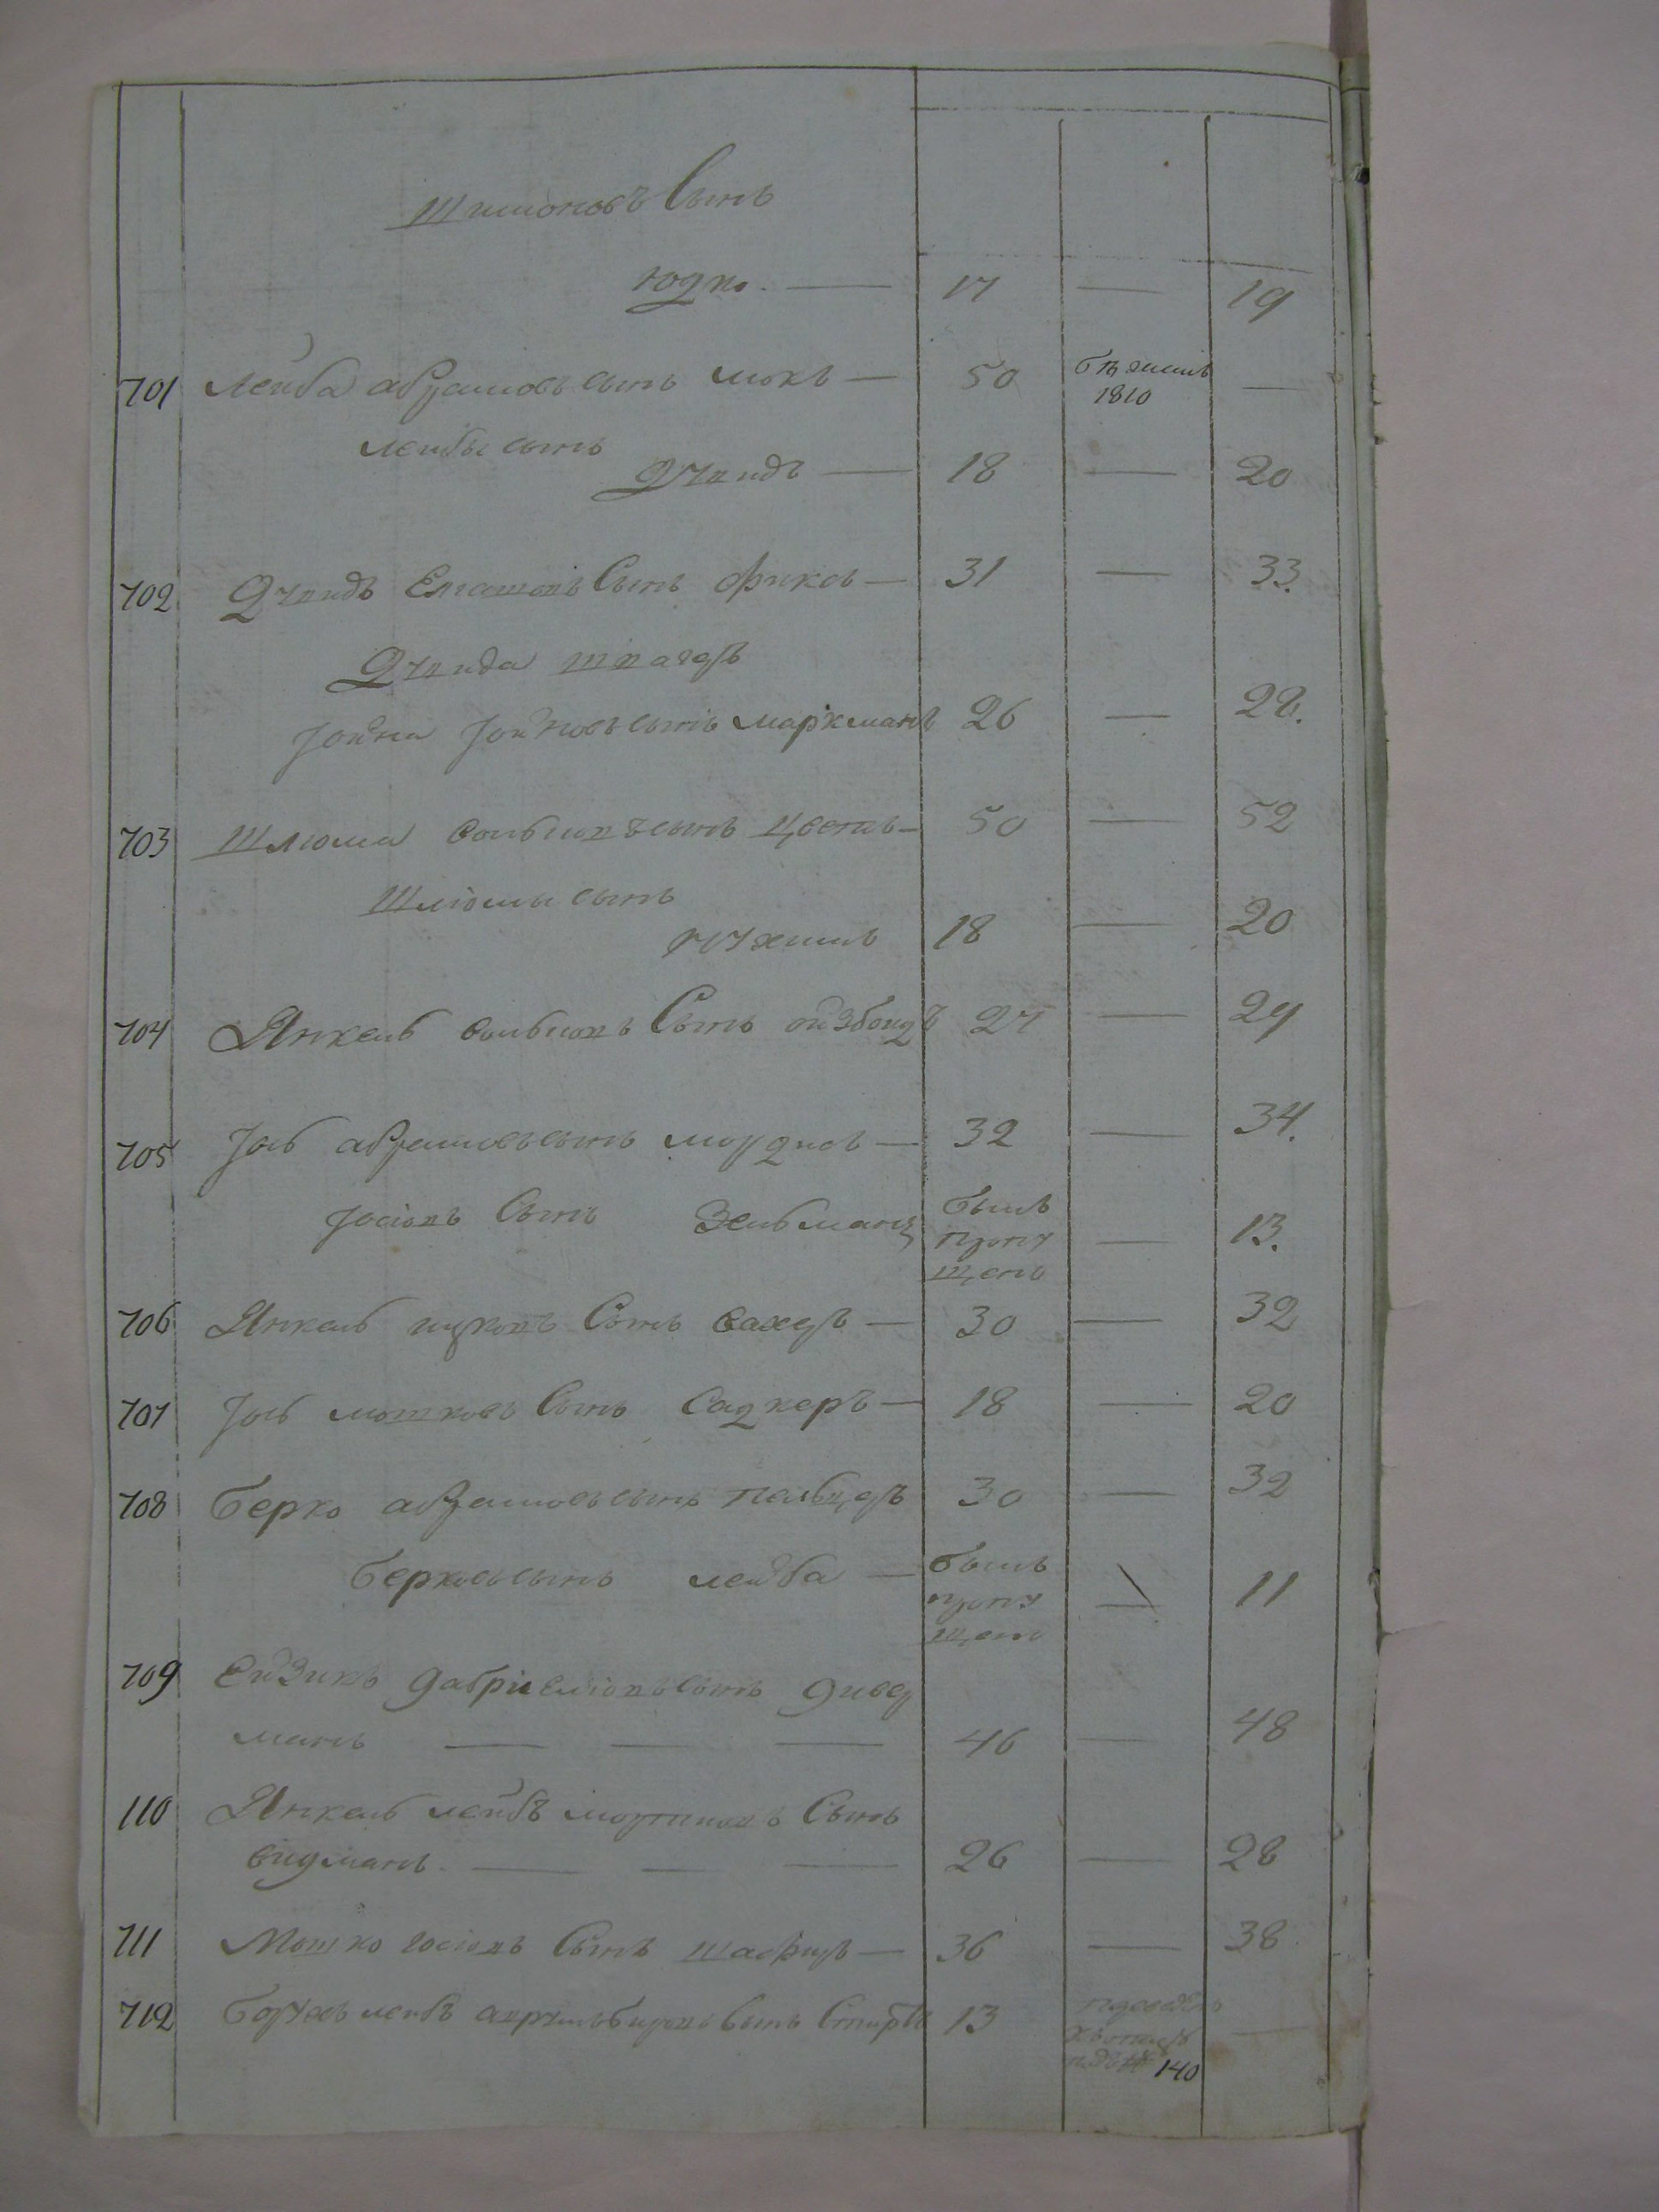 Шимоновъ Сынъ
Юдко. — 17 — 19
701 Лейба абрамовъ сынъ мокъ — 50 бѣжалъ 1810 —
лейбы сынъ
Дувидъ — 18 — 20
702 Дувидъ сынъ фиксъ — 31 — 33.
Дувида швагеръ
Іойна Іойновъ сынъ маркманъ 26 — 28.
703 Шлюма вольвовъ сынъ цветъ — 50 — 52
Шлiомы сынъ
18 — 20
704 Янкель вольвовъ Сынъ ойзбондъ 27 — 29
705 Іось абрамовъ сынъ — 32 — 34.
Іосiовъ Сынъ Зельманъ былъ пропущенъ — 13.
706 Янкель ицковъ Сынъ вахеръ — 30 — 32
707 Іось мошковъ Сынъ Садкеръ — 18 — 20
708 Берко абрамовъ сынъ пельцеръ 30 — 32
Берковъ сынъ лейба — былъ пропущенъ — 11
709 Ейзикъ Габрiелiовъ сынъ
манъ — — — 46 — 48
710 Янкель лейбъ Сынъ
видманъ. — — — 26 — 28
711 Мошко Iосiовъ Сынъ шафиръ — 36 — 38.
712 Борухъ лейбъ Сынъ 13 140 —